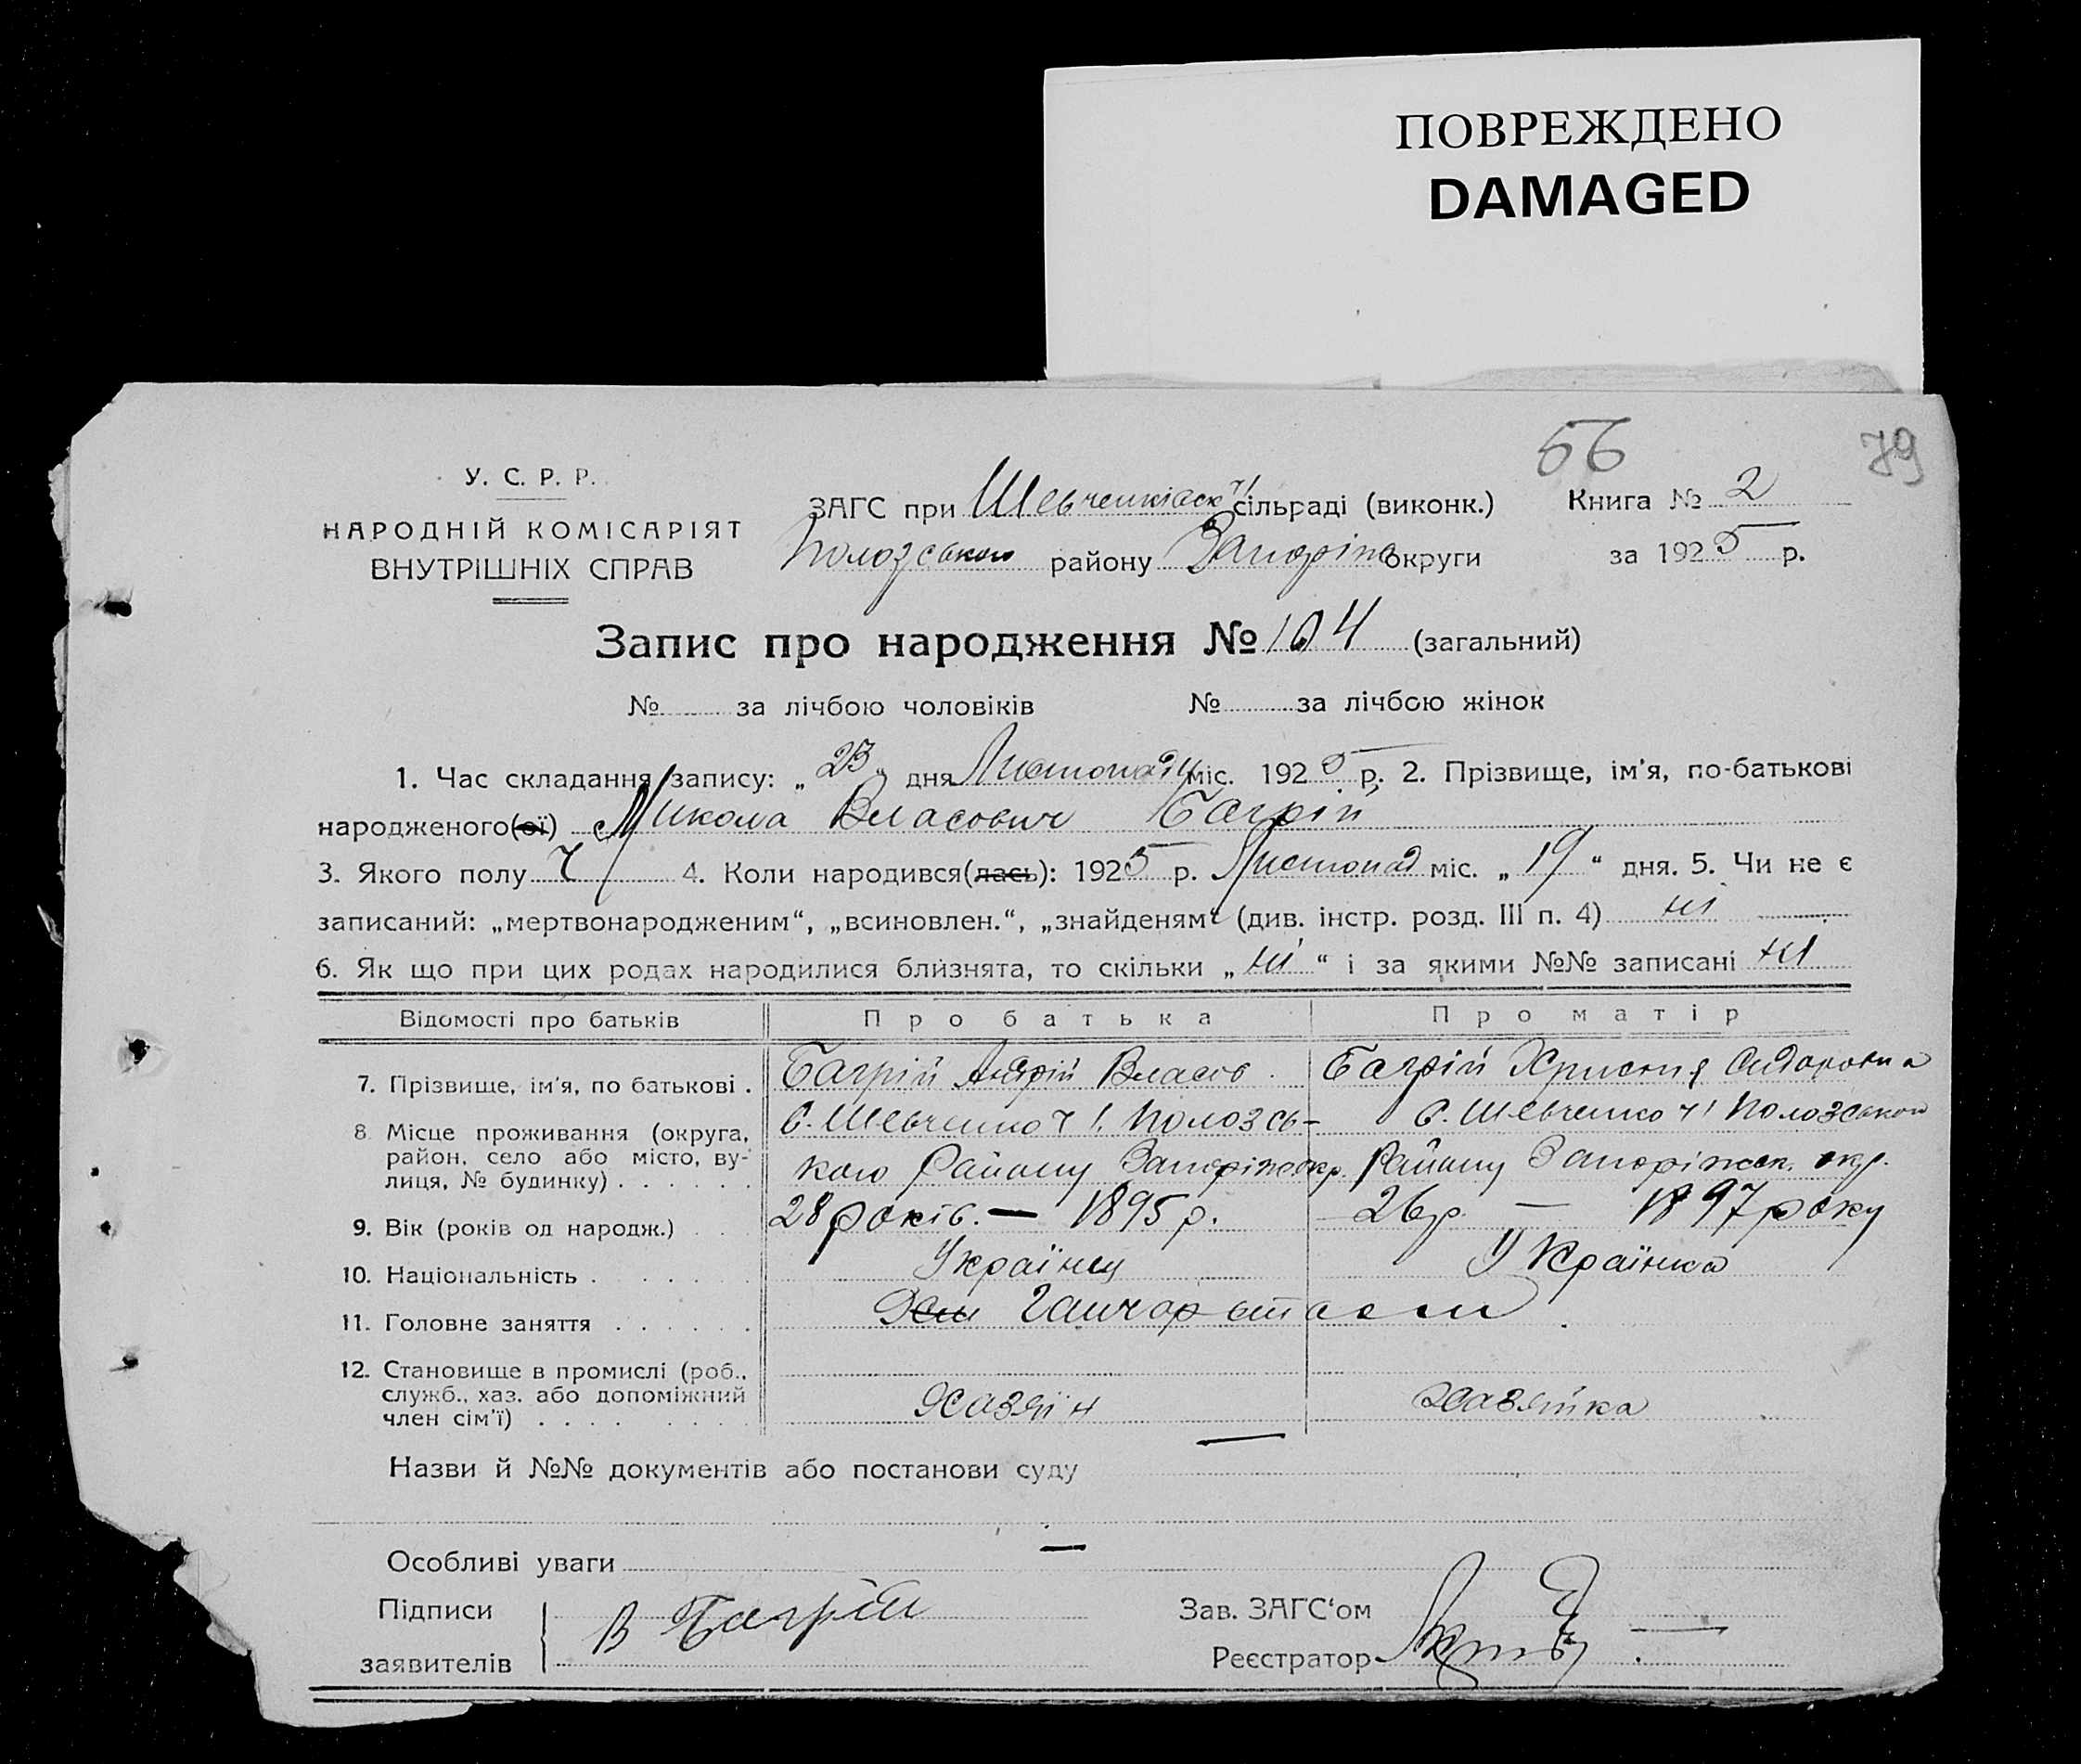 ПОВРЕЖДЕНО
DAMAGED
56 79
У. С. Р. Р.
НАРОДНІЙ КОМІСАРІЯТ
ВНУТРІШНІХ СПРАВ
ЗАГС при Шевченківск ч1 сільраді (виконк.) Книга № 2
Пологського району Запоріж округи за 1925 р.
Запис про народження № 104 (загальний)
№ за лічбою чоловіків № за лічбою жінок
1. Час складання запису: „23“ дня Листопаду міс. 1925 р. 2. Прізвище, ім'я, по-батькові
народженого(ої) Микола Власович Багрій
3. Якого полу Ч 4. Коли народився(лась): 1925 р. Листопад міс. „19“ дня. 5. Чи не є
записаний: „мертвонародженим“, „всиновлен.“, „знайденям“ (див. інстр. розд. III п. 4) ні
6. Як що при цих родах народилися близнята, то скільки „ні“ і за якими №№ записані ні
Відомості про батьків Про батька Про матір
7. Прізвище, ім'я, по батькові . Багрій Власов Багрій Христия Сидоровна
8 Місце проживання (округа, С. Шевченко ч1. Полозсь- С. Шевченко ч1 Полозського
район, село або місто, ву-
лиця, № будинку) . . . . . . кого Району Запоріж окр. Району Запоріжск. окр.
9. Вік (років од народж.) . . . 28 років. — 1895 р. 26 р. — 1897 року
10. Національність . . . . . . . Українец Українка
11. Головне заняття . . . . . .
12. Становище в промислі (роб.,
служб., хаз. або допоміжний Хазяїн хазяйка
член сім'ї) . . . . . . . .
Назви й №№ документів або постанови суду —
Особливі уваги —
Підписи В Багрій Зав. ЗАГС‘ом
заявителів Реєстратор